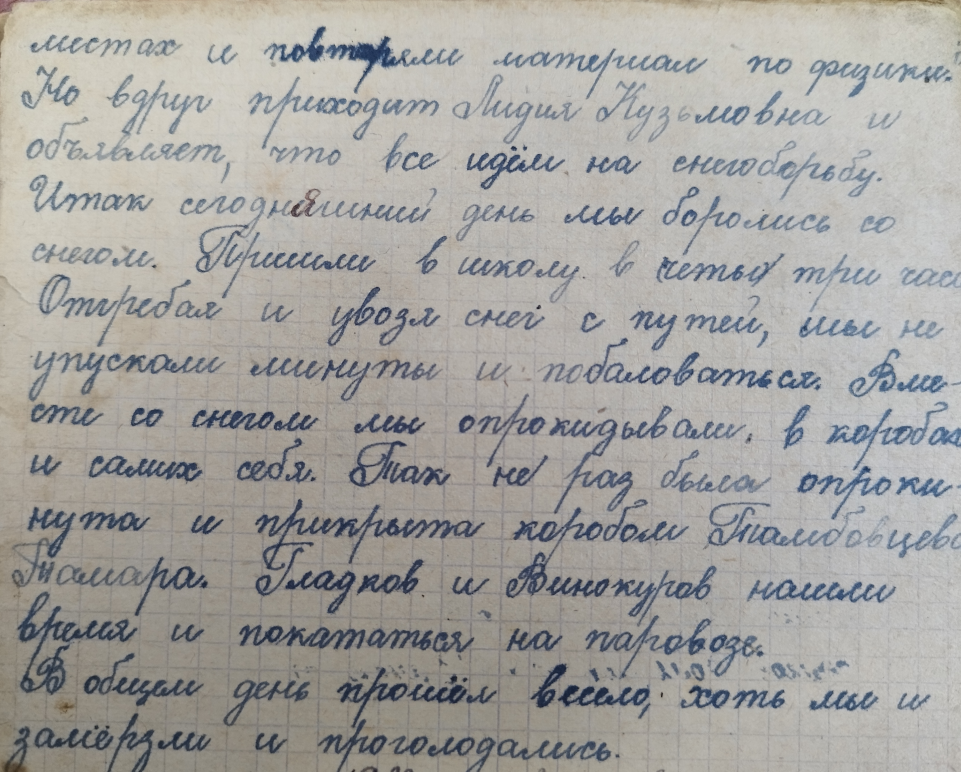 местах и повторяли материал по физики.
Но вдруг приходит Лидия Кузьмовна и
объявляет, что все идём на снегоборьбу.
Итак сегодняшний день мы боролись со
снегом. Пришли в школу в четы три час
Отгребая и увозя снег с путей, мы не
упускали минуты и побаловаться. Вме-
сте со снегом мы опрокидывали в коробах
и самих себя. Так не раз была опроки-
нута и прикрыта коробом Тамбовцева
Тамара. Гладков и Винокуров нашли
время и покататься на паровозе.
В общем день прошёл весело, хоть мы и
замёрзли и проголодались.